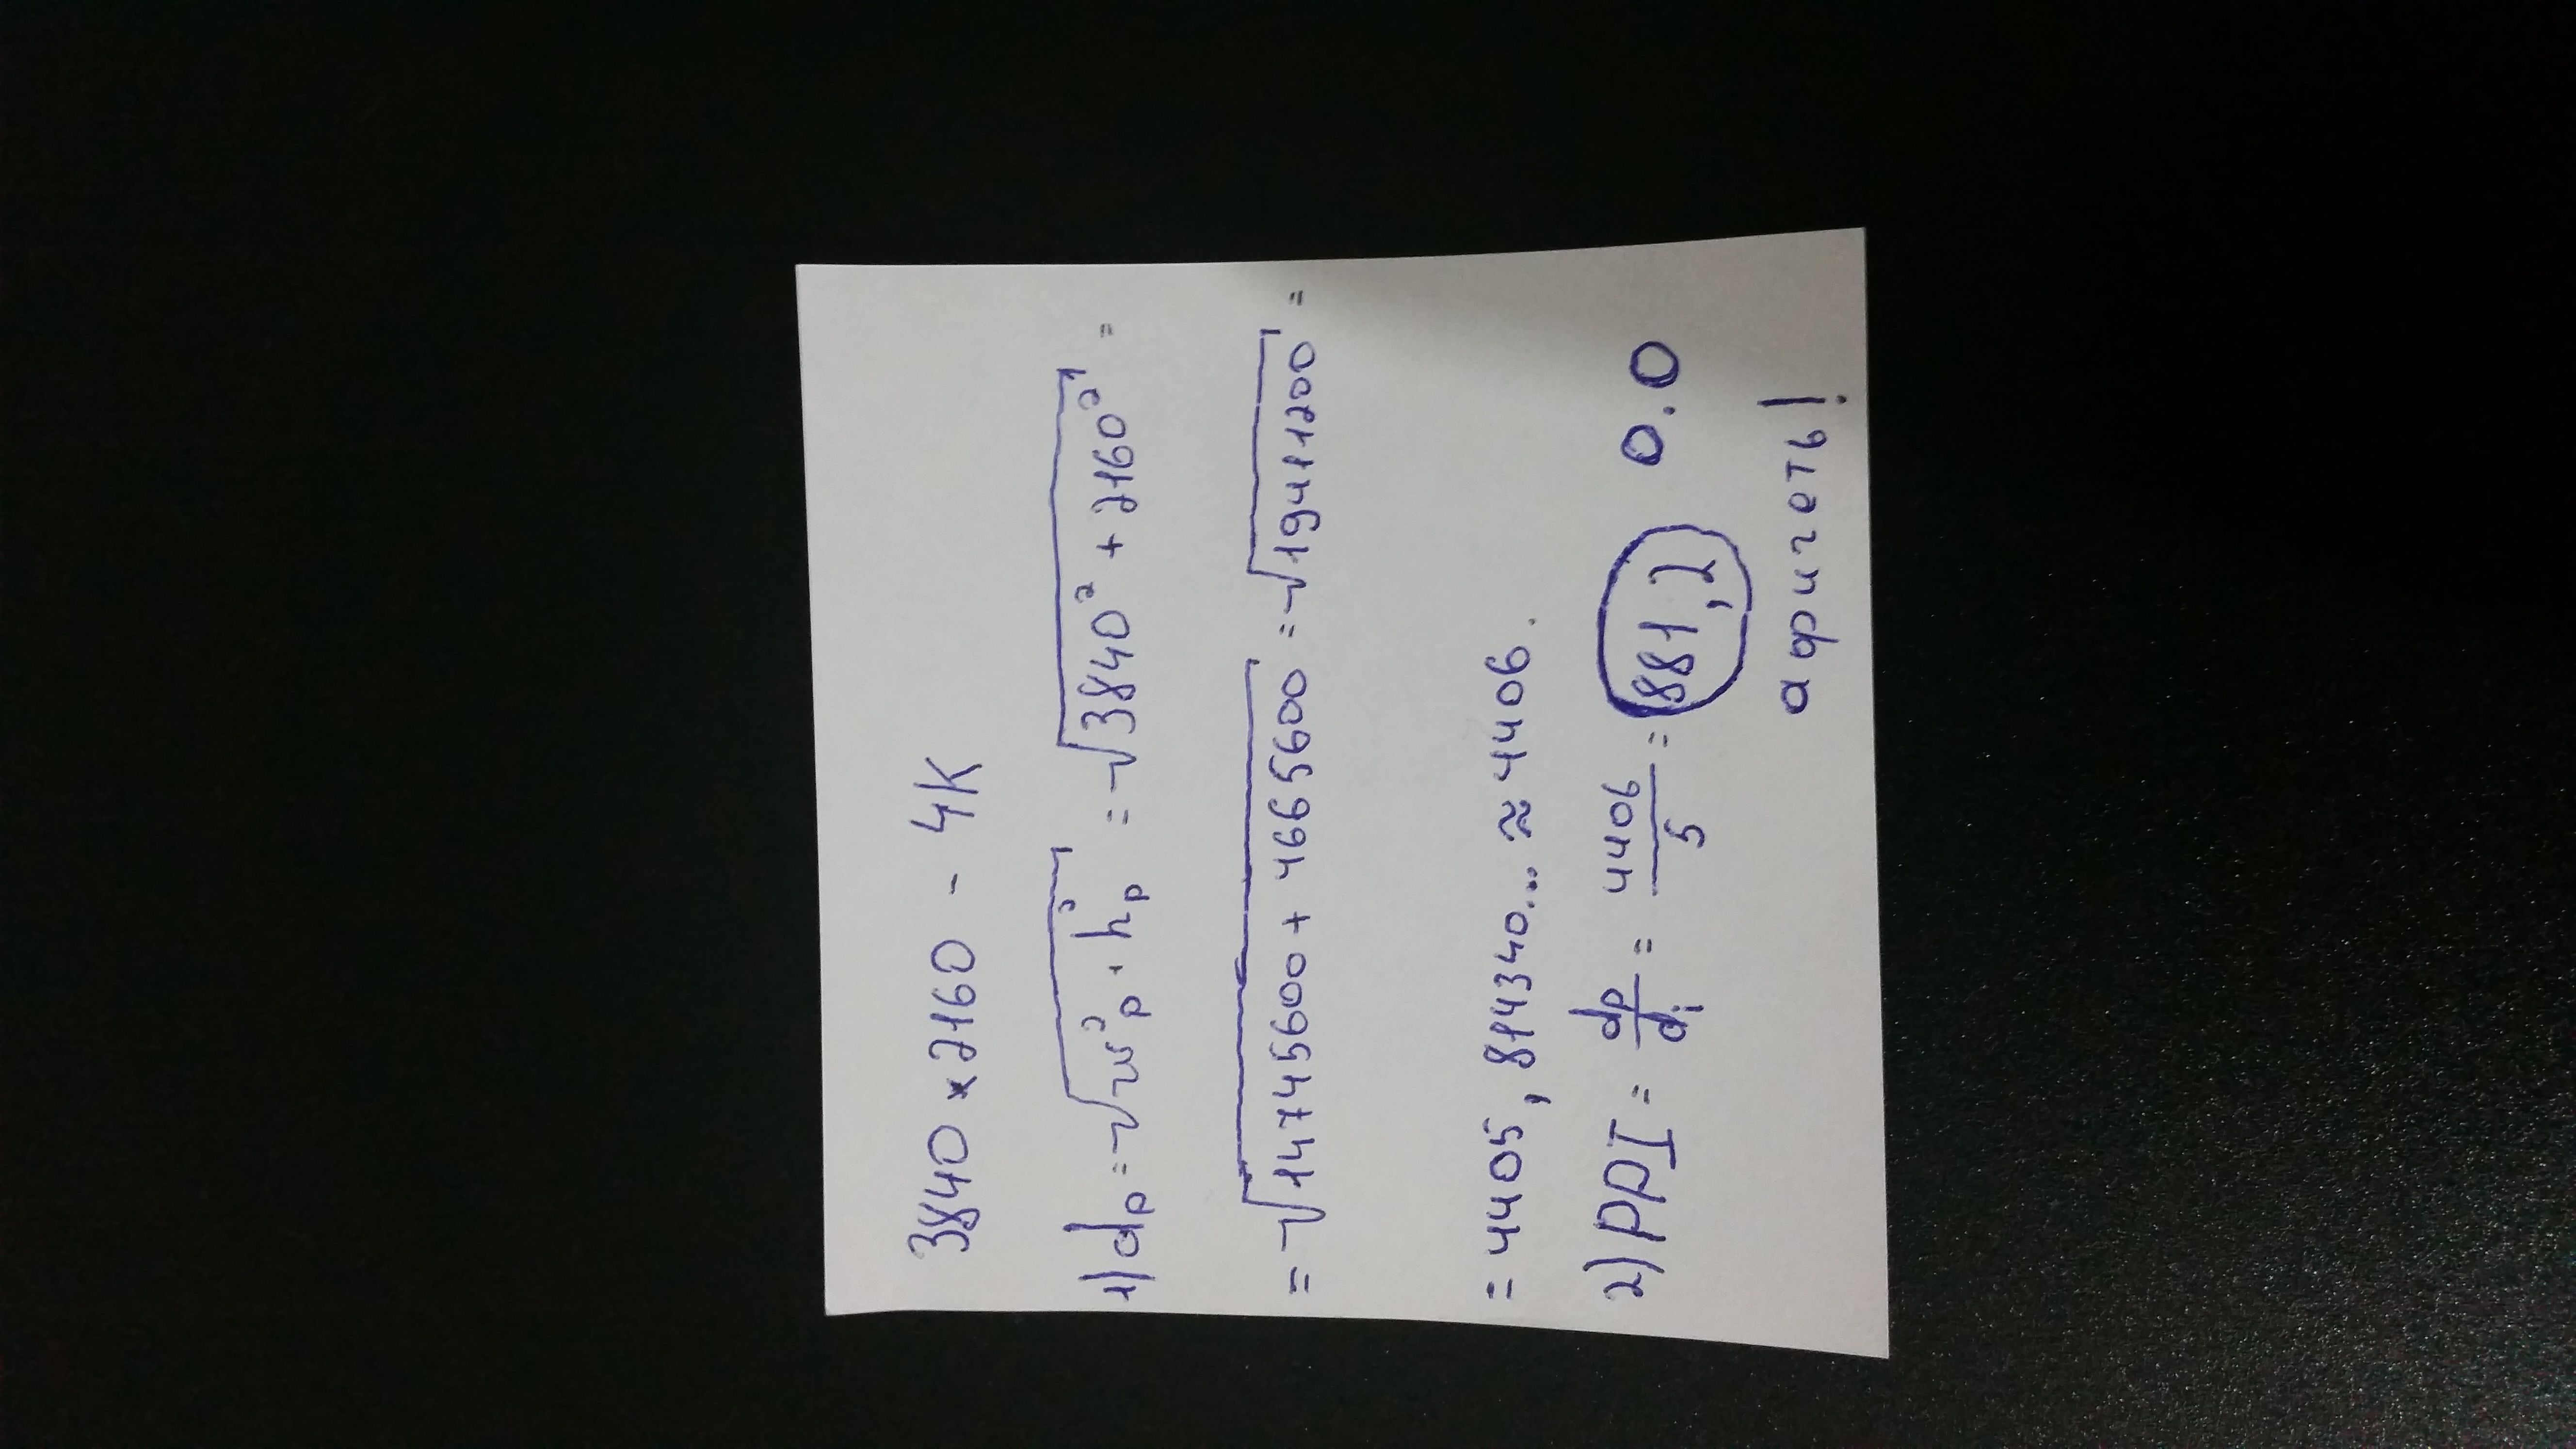 3840×2160 - 4K
1) dp = √(w²p · h²p) = √(3840² + 2160²) =
= √(14745600 + 4665600) = √19411200 =
= 4405,814340... ≈ 4406.
2) PPI = dp/di = 4406/5 = 881,2 0.0
афигеть!